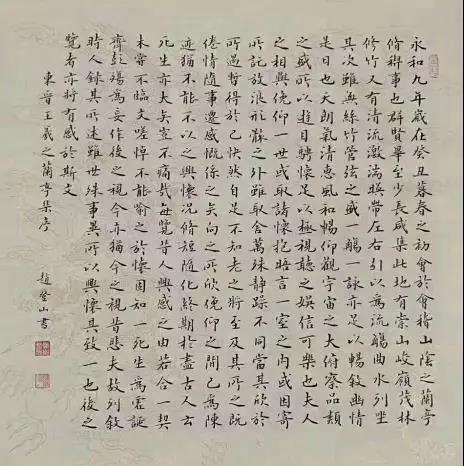 永和九年歲在癸丑暮春之初會於會稽山陰之蘭亭
脩稧事也群賢畢至少長咸集此地有崇山峻嶺茂林
修竹又有清流激湍映帶左右引以為流觴曲水列坐
其次雖無絲竹管弦之盛一觴一詠亦足以暢敘幽情
是日也天朗氣清惠風和暢仰觀宇宙之大俯察品類
之盛所以遊目騁懷足以極視聽之娛信可樂也夫人
之相與俛仰一世或取諸懷抱晤言一室之內或因寄
所託放浪形骸之外雖取舍萬殊靜躁不同當其欣於
所遇暫得於己快然自足不知老之將至及其所之既
倦情隨事遷感慨係之矣向之所欣俛仰之間已為陳
迹猶不能不以之興懷況脩短隨化終期於盡古人云
死生亦大矣豈不痛哉每覽昔人興感之由若合一契
未嘗不臨文嗟悼不能喻之於懷固知一死生為虛誕
齊彭殤為妄作後之視今亦猶今之視昔悲夫故列敘
時人錄其所述雖世殊事異所以興懷其致一也後之
覽者亦將有感於斯文
東晉王羲之蘭亭集序
趙登山書